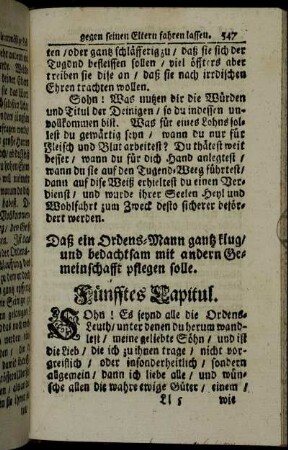 gegen seinen Eltern fahren lassen. 547
ten / oder gantz schläfferig zu / daß sie sich der
Tugend befleissen sollen / viel öffters aber
treiben sie dise an / daß sie nach irrdischen
Ehren trachten wollen.
Sohn: Was nutzen dir die Würden
und Titul der Deinigen / so du indessen un-
vollkommen bist. Was für eines Lohns sol-
lest du gewärtig seyn / wann du nur für
Fleisch und Blut arbeitest? Du thätest weit
besser / wann du für dich Hand anlegtest /
wann du sie auf den Tugend-Weeg führtest /
dann auf dise Weiß erhieltest du einen Ver-
dienst / und wurde ihrer Seelen Heyl und
Wohlfahrt zum Zweck desto sicherer beför-
dert werden.
Daß ein Ordens-Mann gantz klug /
und bedachtsam mit andern Ge-
meinschafft pflegen solle.
Fünfftes Capitul.
SOhn! Es seynd alle die Ordens-
Leuth / unter denen du herum wand-
lest / meine geliebte Söhn / und ist
die Lieb / die ich zu ihnen trage / nicht vor-
greifflich / oder insonderheitlich / sondern
allgemein / dann ich liebe alle / und wün-
sche allen die wahre ewige Güter / einem /
Ll 5 wie